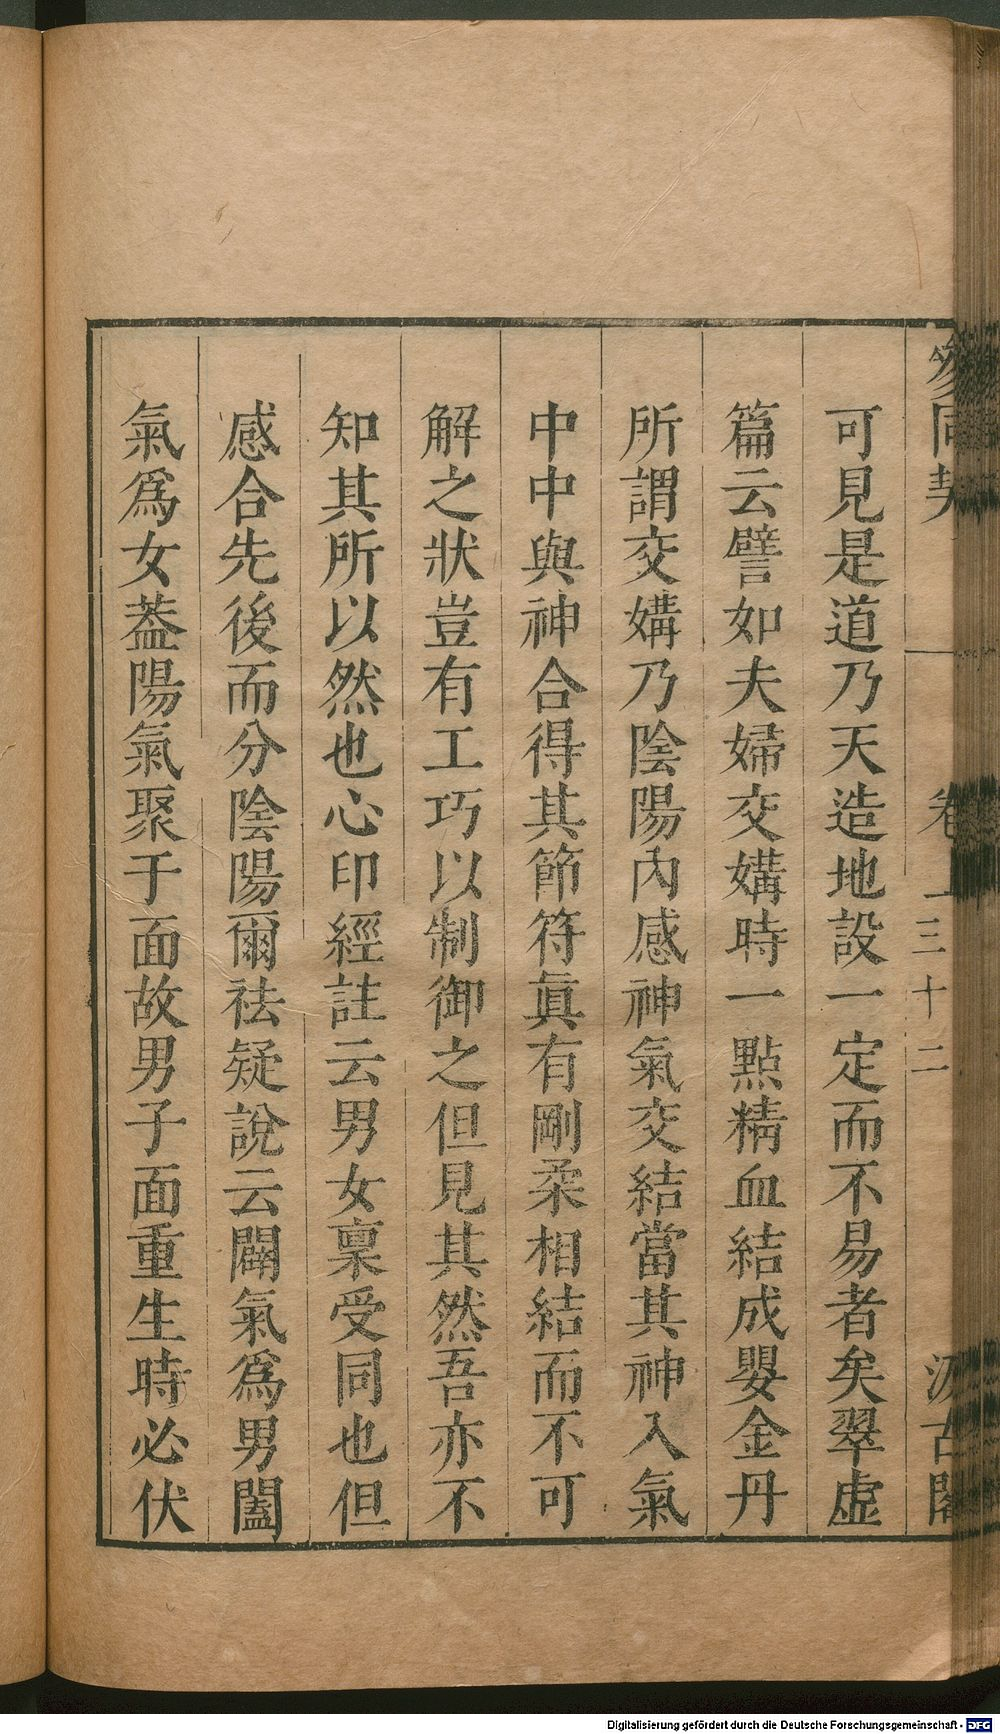 參同契 卷上 三十二 汲古閣
可見是道乃天造地設一定而不易者矣翠虛
篇云譬如夫婦交媾時一點精血結成嬰金丹
所謂交媾乃陰陽內感神氣交結當其神入氣
中中與神合得其節符眞有剛柔相結而不可
解之狀豈有工巧以制御之但見其然吾亦不
知其所以然也心印經註云男女稟受同也但
感合先後而分陰陽爾祛疑說云闢氣爲男闔
氣爲女葢陽氣聚于面故男子面重生時必伏
Digitalisierung gefördert durch die Deutsche Forschungsgemeinschaft - DFG